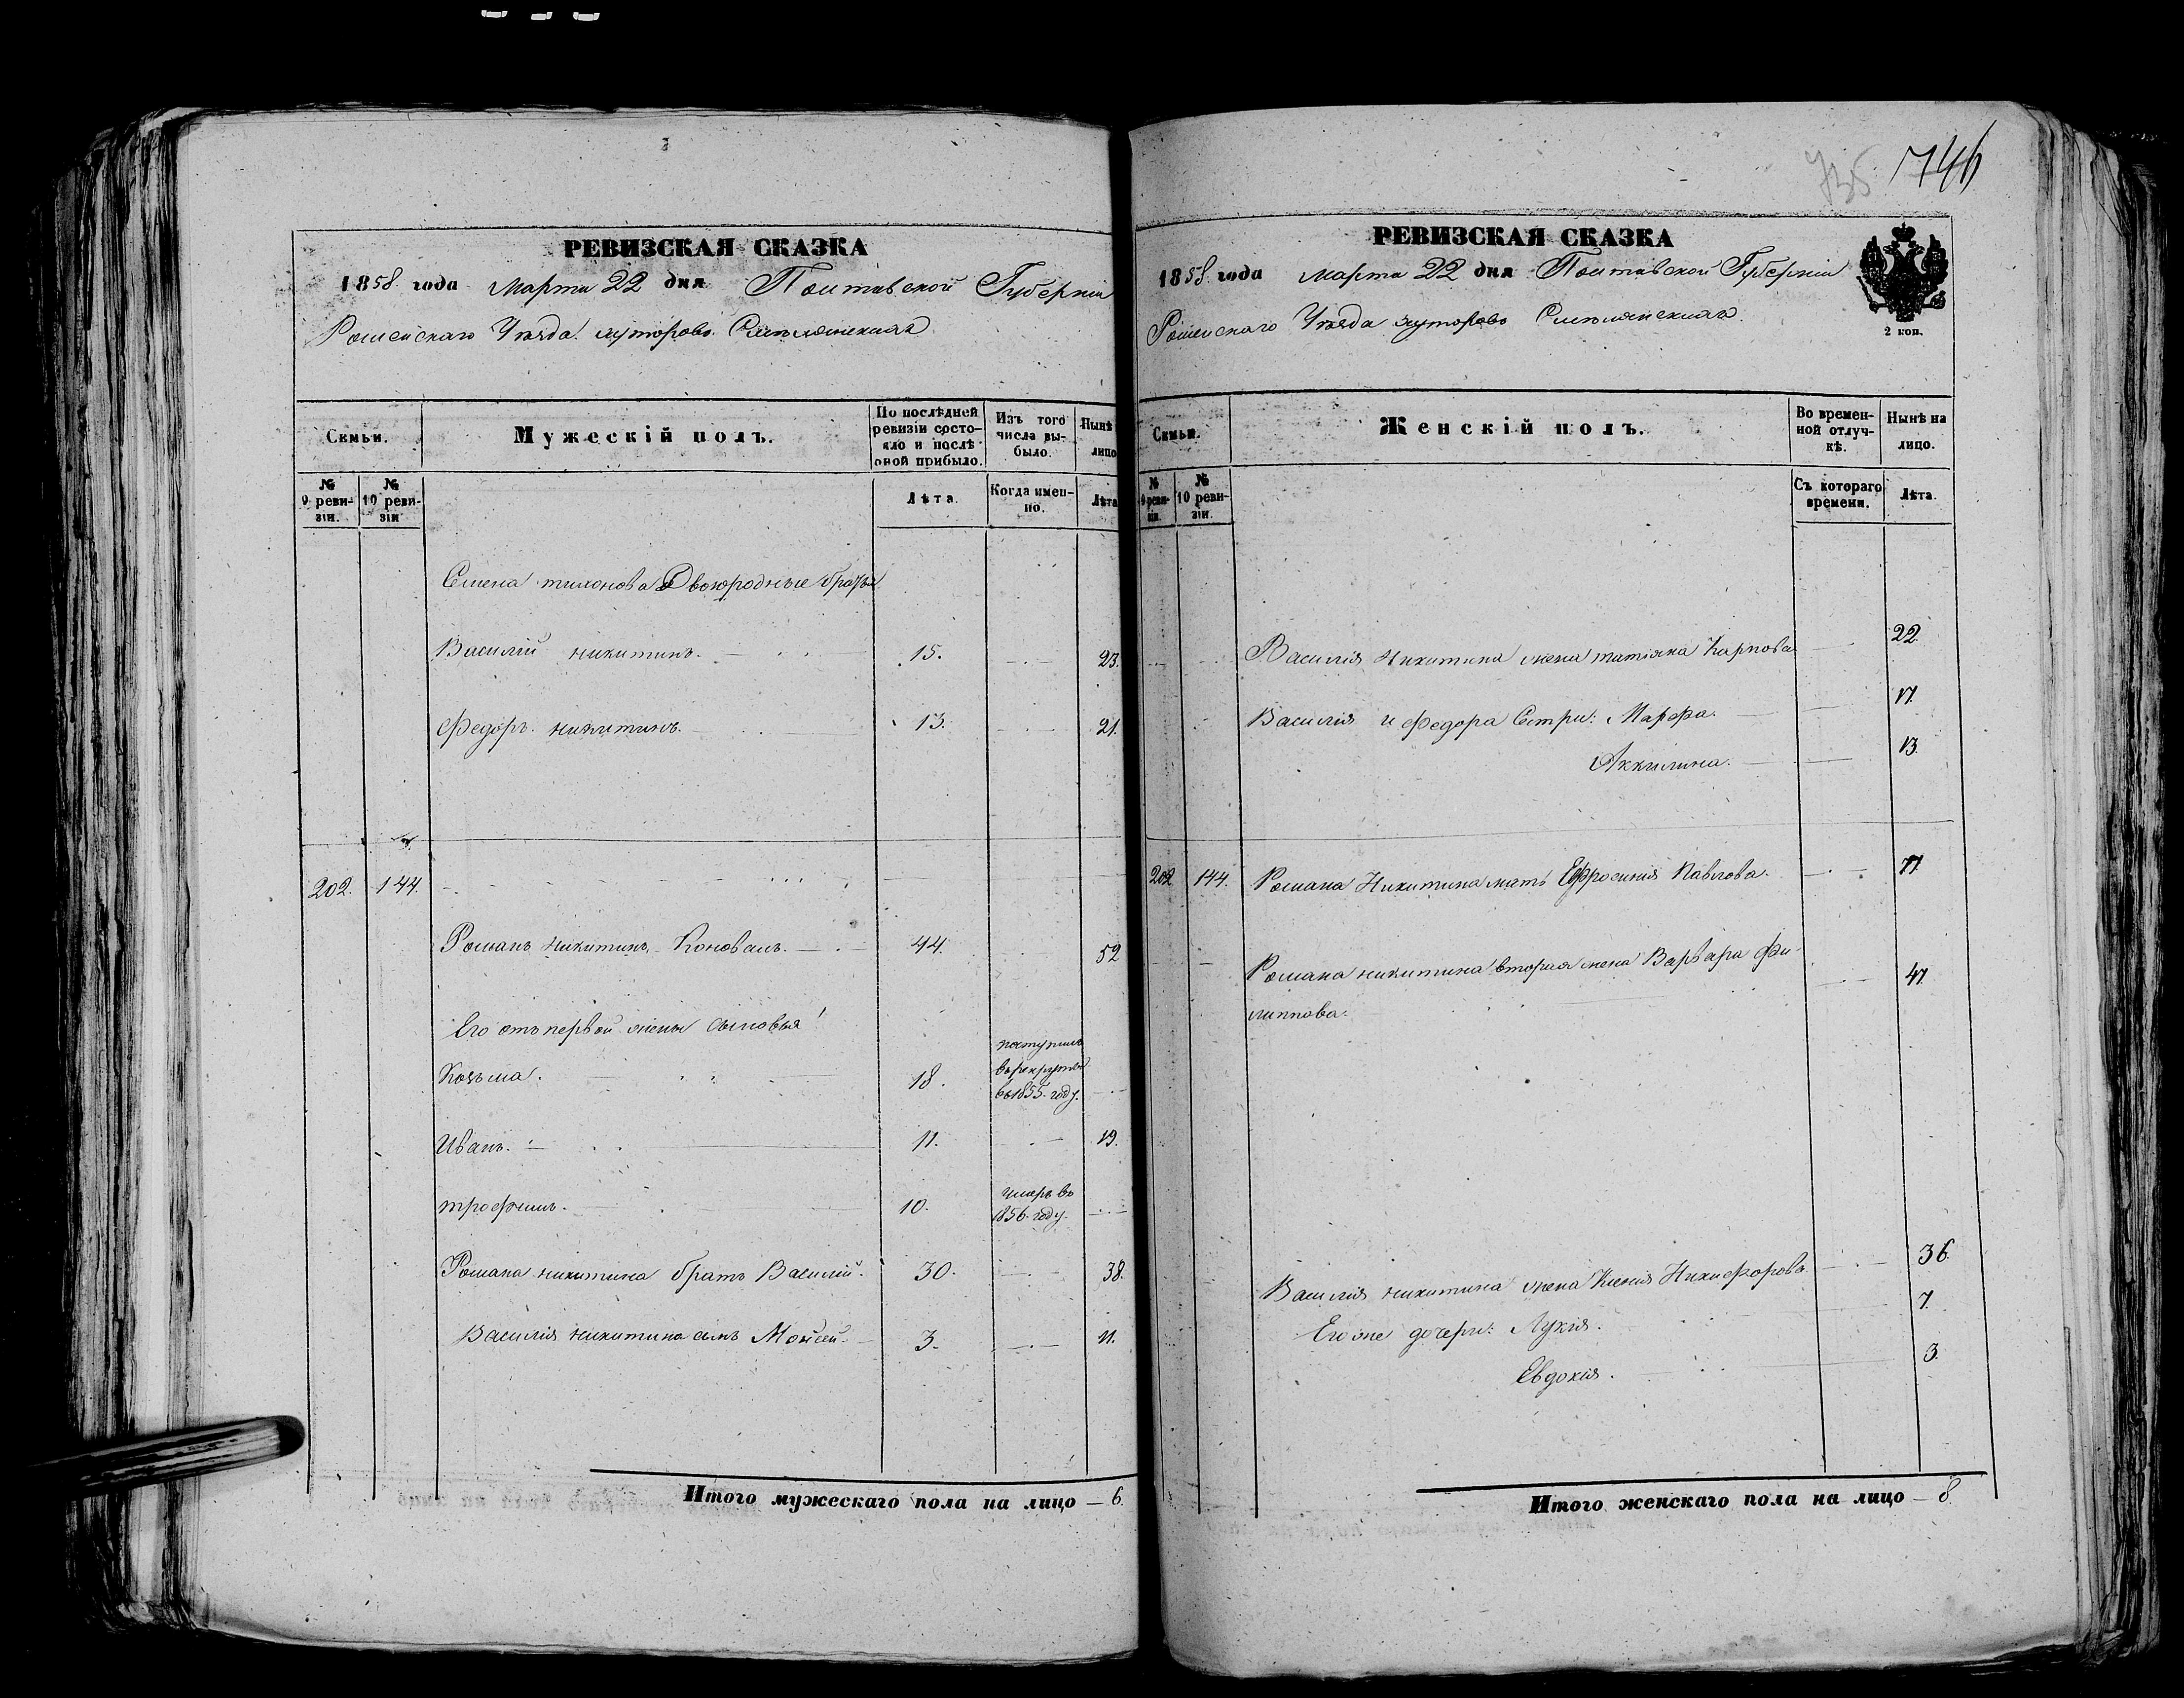 735 746
РЕВИЗСКАЯ СКАЗКА
1858 года Марта 22 дня Полтавской Губерніи
Роменскаго Уѣзда хуторовъ
Семьи.
Мужескій полъ.
По послѣдней ревизіи состояло и послѣ оной прибыло.
Изъ того числа выбыло.
Нынѣ лицо
№ 9 ревизіи.
№ 10 ревизіи
Лѣта.
Когда именно.
Лѣта
Семена тихонова Двоюродные братья
Василій никитинъ. 15. 23.
Федоръ никитинъ. 13. 21.
202. 144.
Романъ никитинъ Коновалъ. 44. 52
Его отъ первой жены сыновья
Козьма. 18. поступилъ
въ рекруты
въ 1855. году.
Иванъ. 11. 19.
трофимъ. 10. умеръ въ
1856. году.
Романа никитина братъ Василій. 30. 38.
Василія никитина сынъ Мойсей. 3. 11.
Итого мужескаго пола на лицо – 6.
РЕВИЗСКАЯ СКАЗКА
1858 года марта 22 дня Полтавской Губерніи
Роменскаго Уѣзда хуторовъ
2 коп.
Семьи.
Женскій полъ.
Во временной отлучкѣ.
Нынѣ на лицо.
№ 9 ревизіи.
№ 10 ревизіи.
Съ котораго времени.
Лѣта.
Василія Никитина жена татіяна Карпова 22.
Василія и Федора Сестры: Марфа. 17.
Аккилина. 13.
202 144. Романа Никитина мать Ефросинія Павлова. 71
Романа никитина вторая жена Варвара Фи-
липпова. 41.
Василія никитина жена Ксенія Никифорова 36.
Его же дочери: Лукія. 7.
Евдокія. 3.
Итого женскаго пола на лицо – 8.